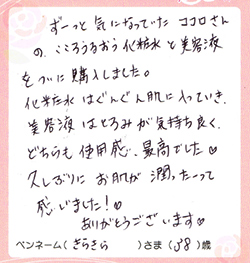 ずーっと気になっていたココロさん
の、こころうるおう化粧水と美容液
をついに購入しました。
化粧水はぐんぐん肌に入っていき、
美容液はとろみが気持ち良く、
どちらも使用感、最高でした♡
久しぶりにお肌が潤ったって
感じました!♡
ありがとうございます♡
ペンネーム(きらきら)さま(38)歳